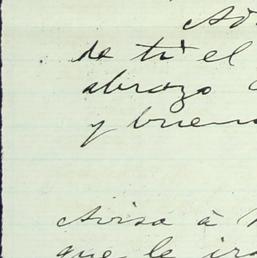 de ti el
abrazo
y buen
Avisa à
que le